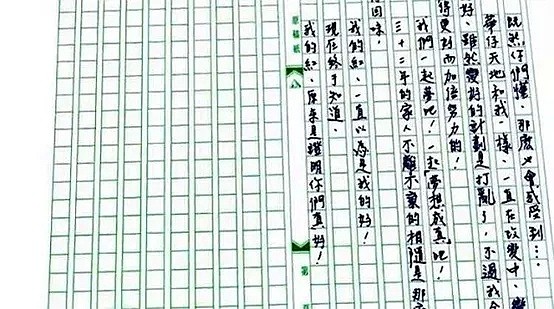 既然你們懂、那麼也會感受到…
華仔天地和我一樣、一直在改變中、
好、雖然變好的計劃是打亂了，不過我會
得更好而加倍努力的！
我們一起夢吧！一起「夢想成真」吧！
三十二年的家人不離不棄的相隨是那
回味，
我的紅、一直以為是我的好！
現在終于知道、
我的紅、原來是證明你們真好！
原稿紙
八
第